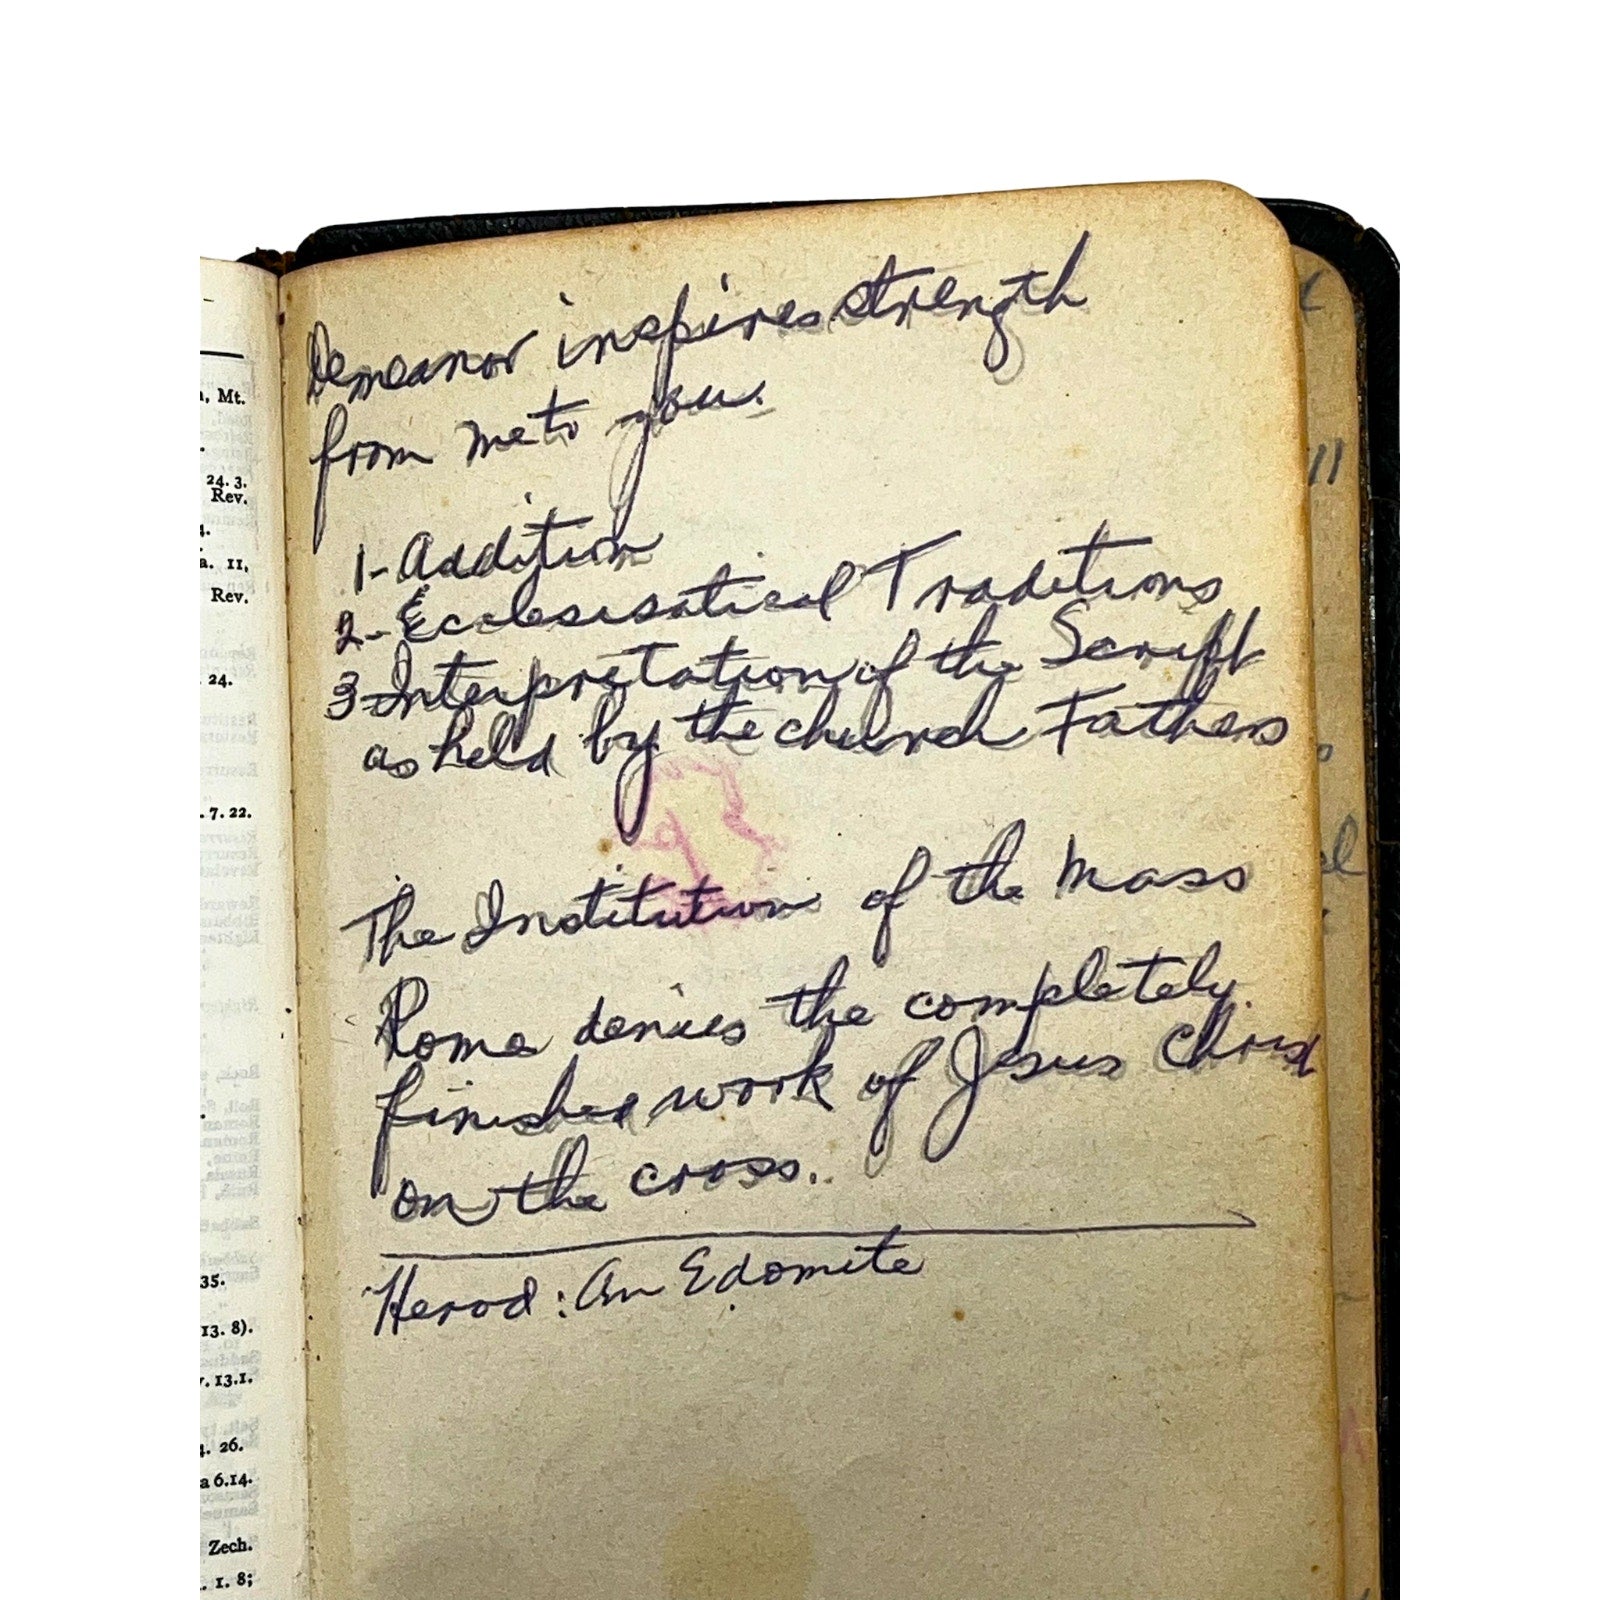 , Mt.
24. 3.
Rev.
4.
a. 11,
Rev.
24.
. 7. 22.
35.
13. 8).
. 13.1.
4. 26.
a 6.14.
Zech.
. 1. 8;
Demeanor inspires strength
from me to you.
1- Addition
2- Ecclesisatical Traditions
3- Interpretation of the Script
as held by the church Fathers
The Institution of the Mass
Rome denies the completely
finished work of Jesus Christ
on the cross.
Herod: An Edomite